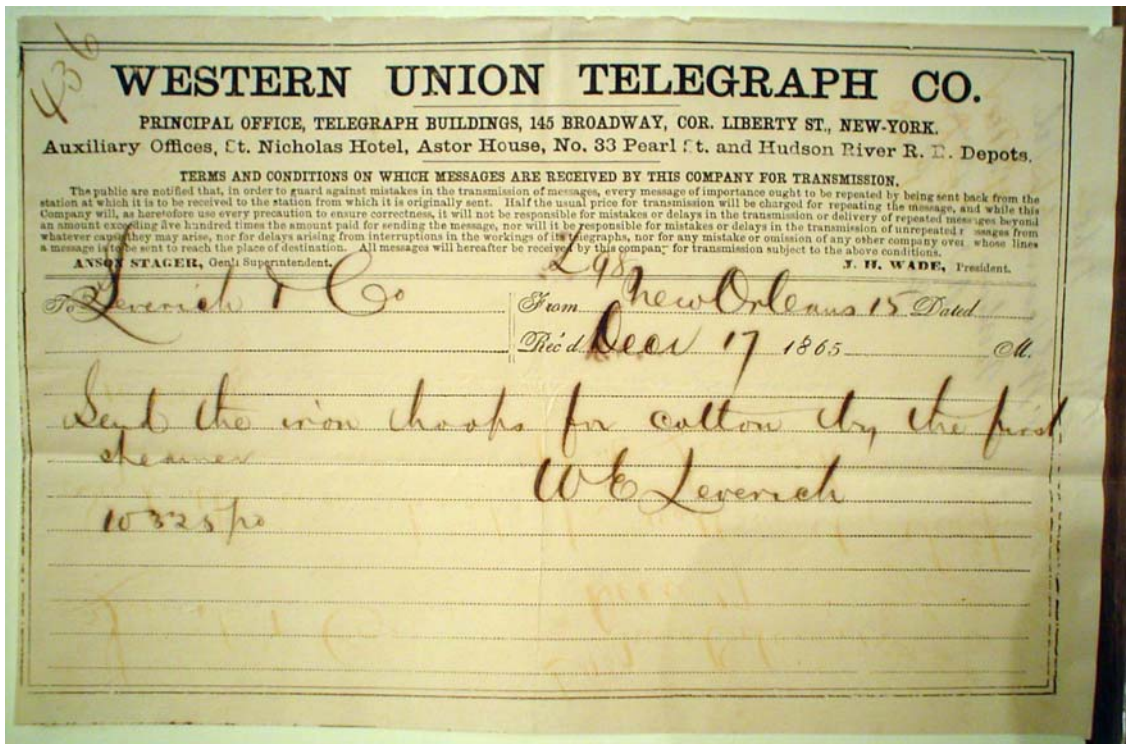 436
WESTERN UNION TELEGRAPH CO.
PRINCIPAL OFFICE, TELEGRAPH BUILDINGS, 145 BROADWAY, COR. LIBERTY ST., NEW-YORK.
Auxiliary Offices, St. Nicholas Hotel, Astor House, No. 33 Pearl St. and Hudson River R. R. Depots.
TERMS AND CONDITIONS ON WHICH MESSAGES ARE RECEIVED BY THIS COMPANY FOR TRANSMISSION.
The public are notified that, in order to guard against mistakes in the transmission of messages, every message of importance ought to be repeated by being sent back from the
station at which it is to be received to the station from which it is originally sent. Half the usual price for transmission will be charged for repeating the message, and while this
Company will, as heretofore use every precaution to ensure correctness, it will not be responsible for mistakes or delays in the transmission or delivery of repeated messages beyond
an amount exceeding five hundred times the amount paid for sending the message, nor will it be responsible for mistakes or delays in the transmission of unrepeated messages from
whatever cause they may arise, nor for delays arising from interruptions in the workings of its telegraphs, nor for any mistake or omission of any other company over whose lines
a message is to be sent to reach the place of destination. All messages will hereafter be received by this company for transmission subject to the above conditions.
ANSON STAGER, Gen'l Superintendent. J. H. WADE, President.
To Leverich & Co
From New Orleans 15 Dated
Rec'd Decr 17 1865 M.
Send the iron hoops for cotton by the first
steamer
W E Leverich
10 325